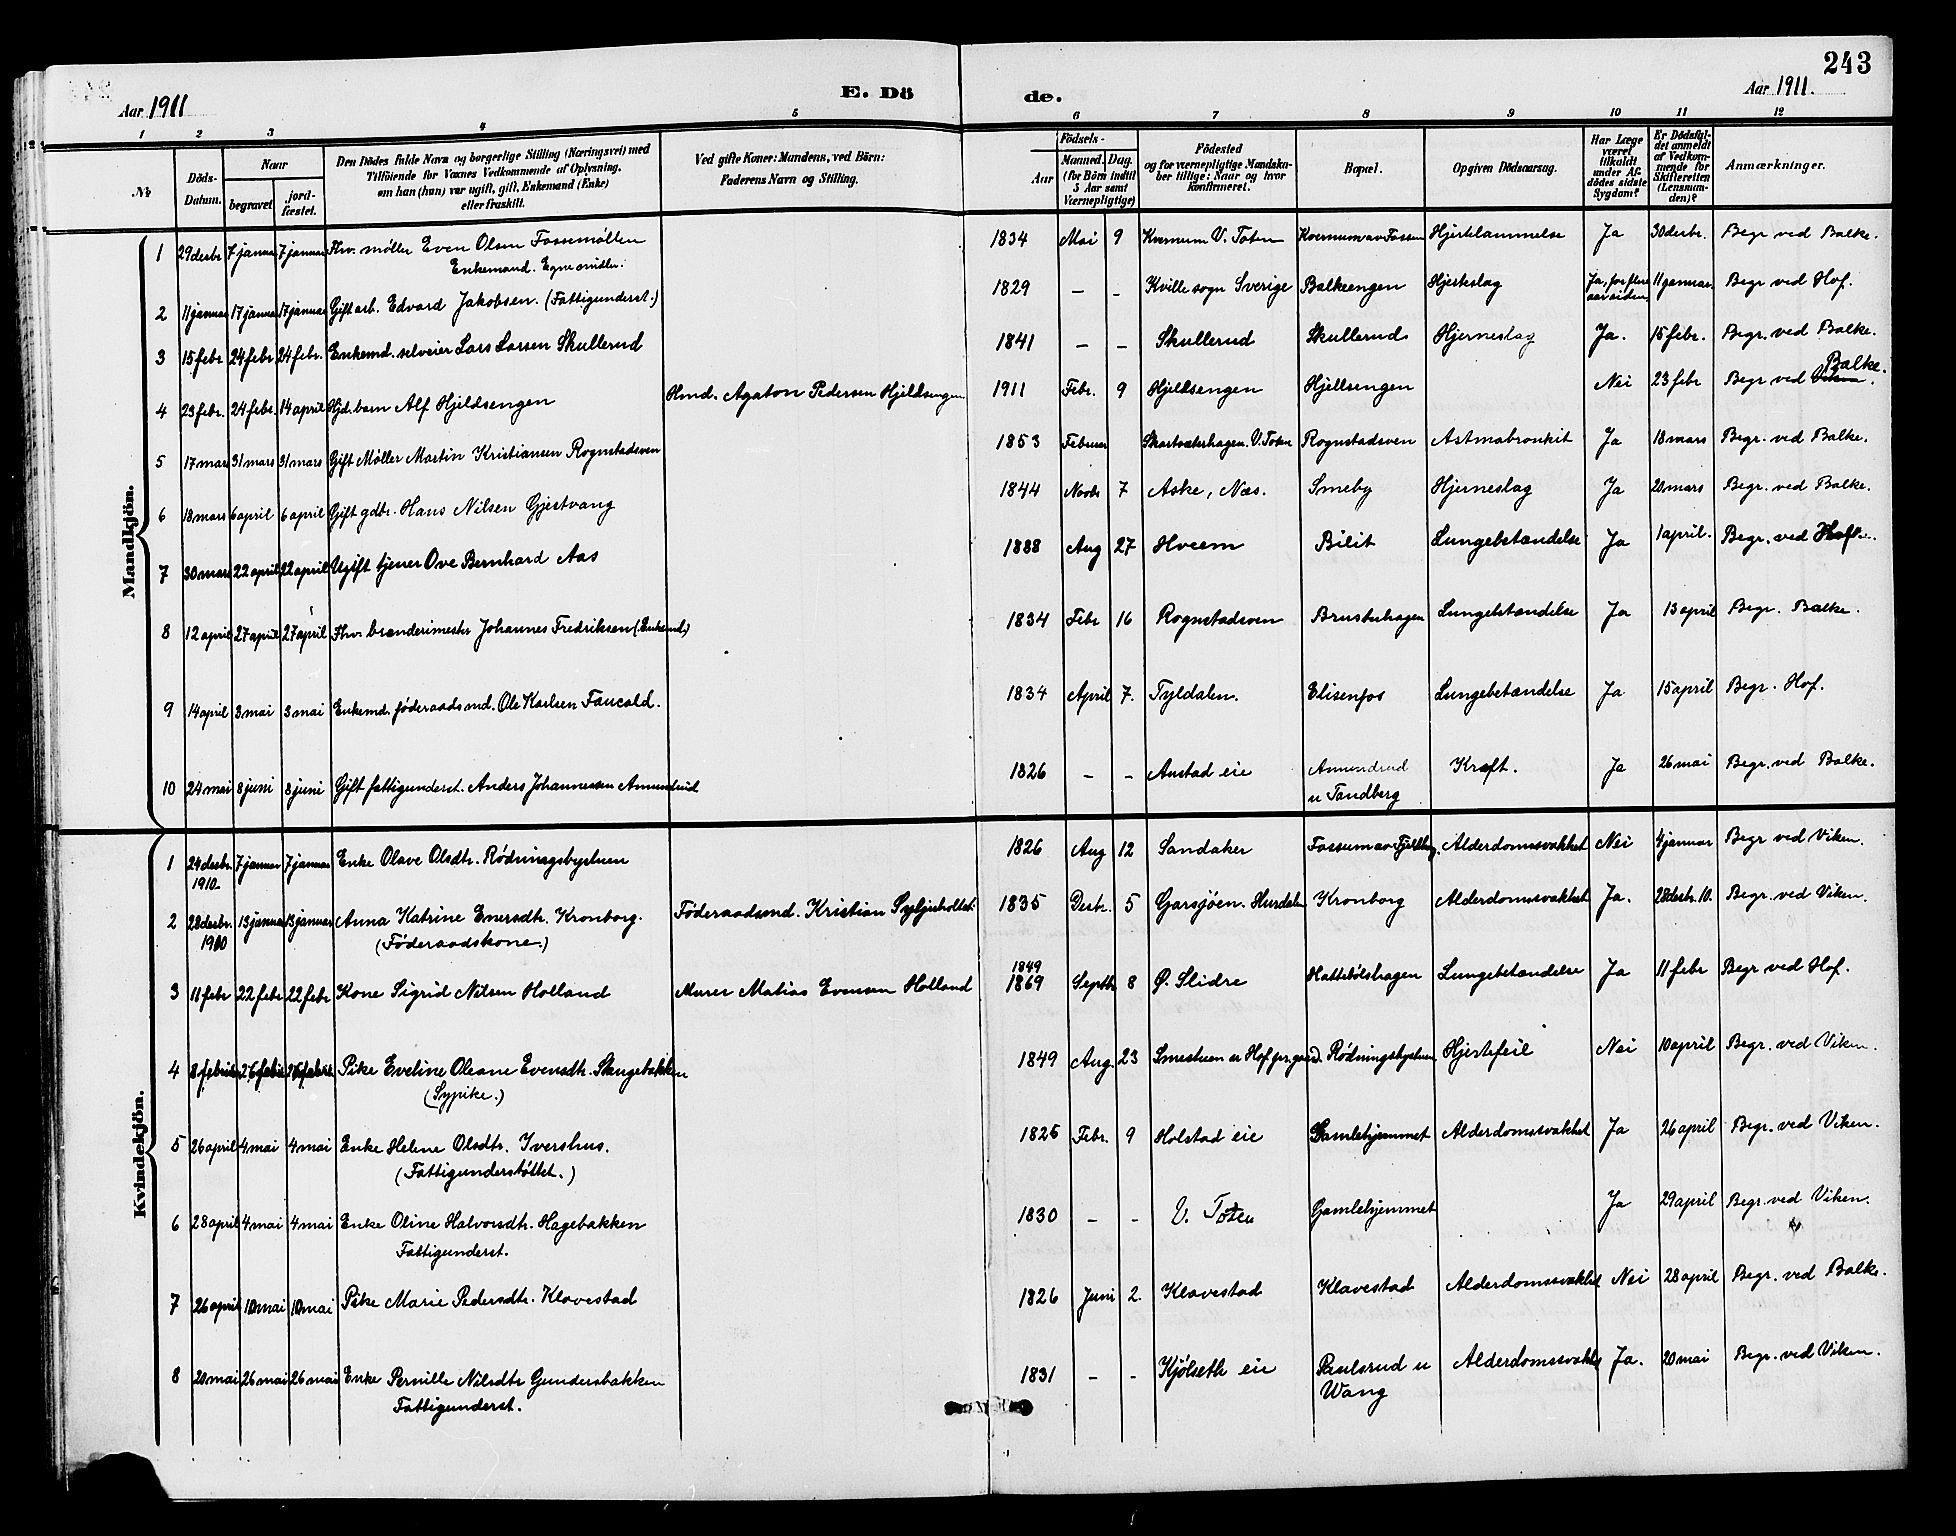 243
Aar 1911
E. Dö
de.
Aar 1911.
1 2 3 4 5 6 7 8 9 10 11 12
№
Döds-
Datum.
Naar
begravet
jord-
fæstet.
Den Dödes fulde Navn og borgerlige Stilling (Næringsvei) med
Tilföiende for Voxnes Vedkommende af Oplysning,
om han (hun) var ugift, gift, Enkemand (Enke)
eller fraskilt.
Ved gifte Koner: Mandens, ved Börn:
Faderens Navn og Stilling.
Födsels-
Aar
Maaned. Dag.
(for Börn indtil
5 Aar samt
Værnepligtige)
Födested
og for værnepligtige Mandska-
ber tillige: Naar og hvor
konfirmeret.
Bopæl.
Opgiven Dödsaarsag.
Har Læge
været
tilkaldt
under Af-
dödes sidste
Sygdom?
Er Dödsfal-
det anmeldt
af Vedkom-
mende for
Skifteretten
(Lensman-
den)?
Anmærkninger.
Mandkjön.
1 29 desbr 7 januar 7 januar Fhv. møller Even Olsen Fossemøllen 1834 Mai 9 Kvernum V. Toten Kvernum av Fossum Hjertelammelse Ja 30 desbr. Begr ved Balke.
Enkemand. Egne midler.
2 11 januar 17 januar 17 januar Gift arb. Edvard Jakobsen. (Fattigunderst.) 1829 – – Kville sogn Sverige Balkeengen Hjerteslag Ja, for flere 11 januar. Begr ved Hof.
aar siden
3 15 febr 24 febr 24 febr. Enkemd. selveier Lars Larsen Skullerud 1841 – – Skullerud Skullerud Hjerneslag Ja. 15 febr. Begr. ved Balke.
Balke.
4 23 febr. 24 febr. 14 april Hjd. barn Alf Hjeldsengen Hmd. Agaton Pedersen Hjeldsengen 1911 Febr. 9 Hjeldsengen Hjellsengen Nei 23 febr Begr ved Viken.
5 17 mars 31 mars 31 mars Gift Møller Martin Kristiansen Rognstadsven 1853 Februar V. Toten Rognstadsven Astmabronkit Ja 18 mars Begr. ved Balke.
6 18 mars 6 april 6 april Gift gdbr. Hans Nilsen Gjestvang 1844 Novb 7 Aske, Næs. Smeby Hjerneslag Ja 20 mars Begr. ved Balke.
7 30 mars 22 april 22 april Ugift tjener Ove Bernhard Aas 1888 Aug 27 Hveem Bilit Lungebetændelse Ja 1 april. Begr. ved Hof.
8 12 april 27 april 27 april Fhv. brænderimester Johannes Fredriksen (Enkemd.) 1834 Febr 16 Rognstadsven Brustuhagen Lungebetændelse Ja 13 april Begr. Balke.
9 14 april 3 mai 3 mai Enkemd. føderaadsmd. Ole Karlsen Faucald. 1834 April 7. Tyldalen. Elisenfos Lungebetændelse Ja 15 april Begr. Hof.
10 24 mai 8 juni 8 juni Gift fattigunderst. Anders Johannessen Amundrud 1826 – – Anstad eie Amundrud Kræft. Ja 26 mai Begr. ved Balke.
u Tandberg
Kvindekjön.
1 24 desbr. 7 januar 7 januar Enke Olave Olsdtr. Rødningsbystuen 1826 Aug 12 Sandaker Fossum av Fjeldhaug. Alderdomssvakhet Nei 4 januar Begr ved Viken.
1910.
2 28 desbr. 13 januar 13 januar Anna Katrine Enersdtr. Kronborg. Føderaadsmd. Kristian 1835 Desbr. 5 Garsjøen. Hurdalen Kronborg Alderdomssvakhet Ja. 28 desbr. 10. Begr. ved Viken.
1910 (Føderaadskone.)
1849
3 11 febr 22 febr 22 febr Kone Sigrid Nilsen Holland Murer Matias Evensen Holland 1869 Septbr 8 Ø. Slidre Hattebølshagen Lungebetændelse Ja 11 febr Begr ved Hof.
4 Pike Eveline Oleane Evensdtr. Skaugebakken 1849 Aug. 23 Smestuen u Hof pr. gaard. Rødningsbystuen Hjertefeil Nei 10 april Begr. ved Viken.
(Sypike.)
5 26 april 4 mai 4 mai Enke Helene Olsdtr. Ivershus. 1825 Febr. 9 Holstad eie Gamlehjemmet Alderdomssvakhet Ja 26 april Begr. ved Viken.
(Fattigunderstøttet.)
6 28 april 4 mai 4 mai Enke Oline Halvorsdtr. Hagebakken 1830 – – V. Toten Gamlehjemmet Ja 29 april Begr. ved Viken.
Fattigunderst.
7 26 april 10 mai 10 mai Pike Marie Pedersdtr. Klavestad 1826 Juni 2. Klavestad Klavestad Alderdomssvakhet Nei 28 april Begr. ved Balke.
8 20 mai 26 mai 26 mai Enke Pernille Nilsdtr Gundersbakken 1831 – – Kjölseth eie Paulsrud u Alderdomssvakhet Ja. 20 mai Begr. ved Viken.
Fattigunderst. Wang